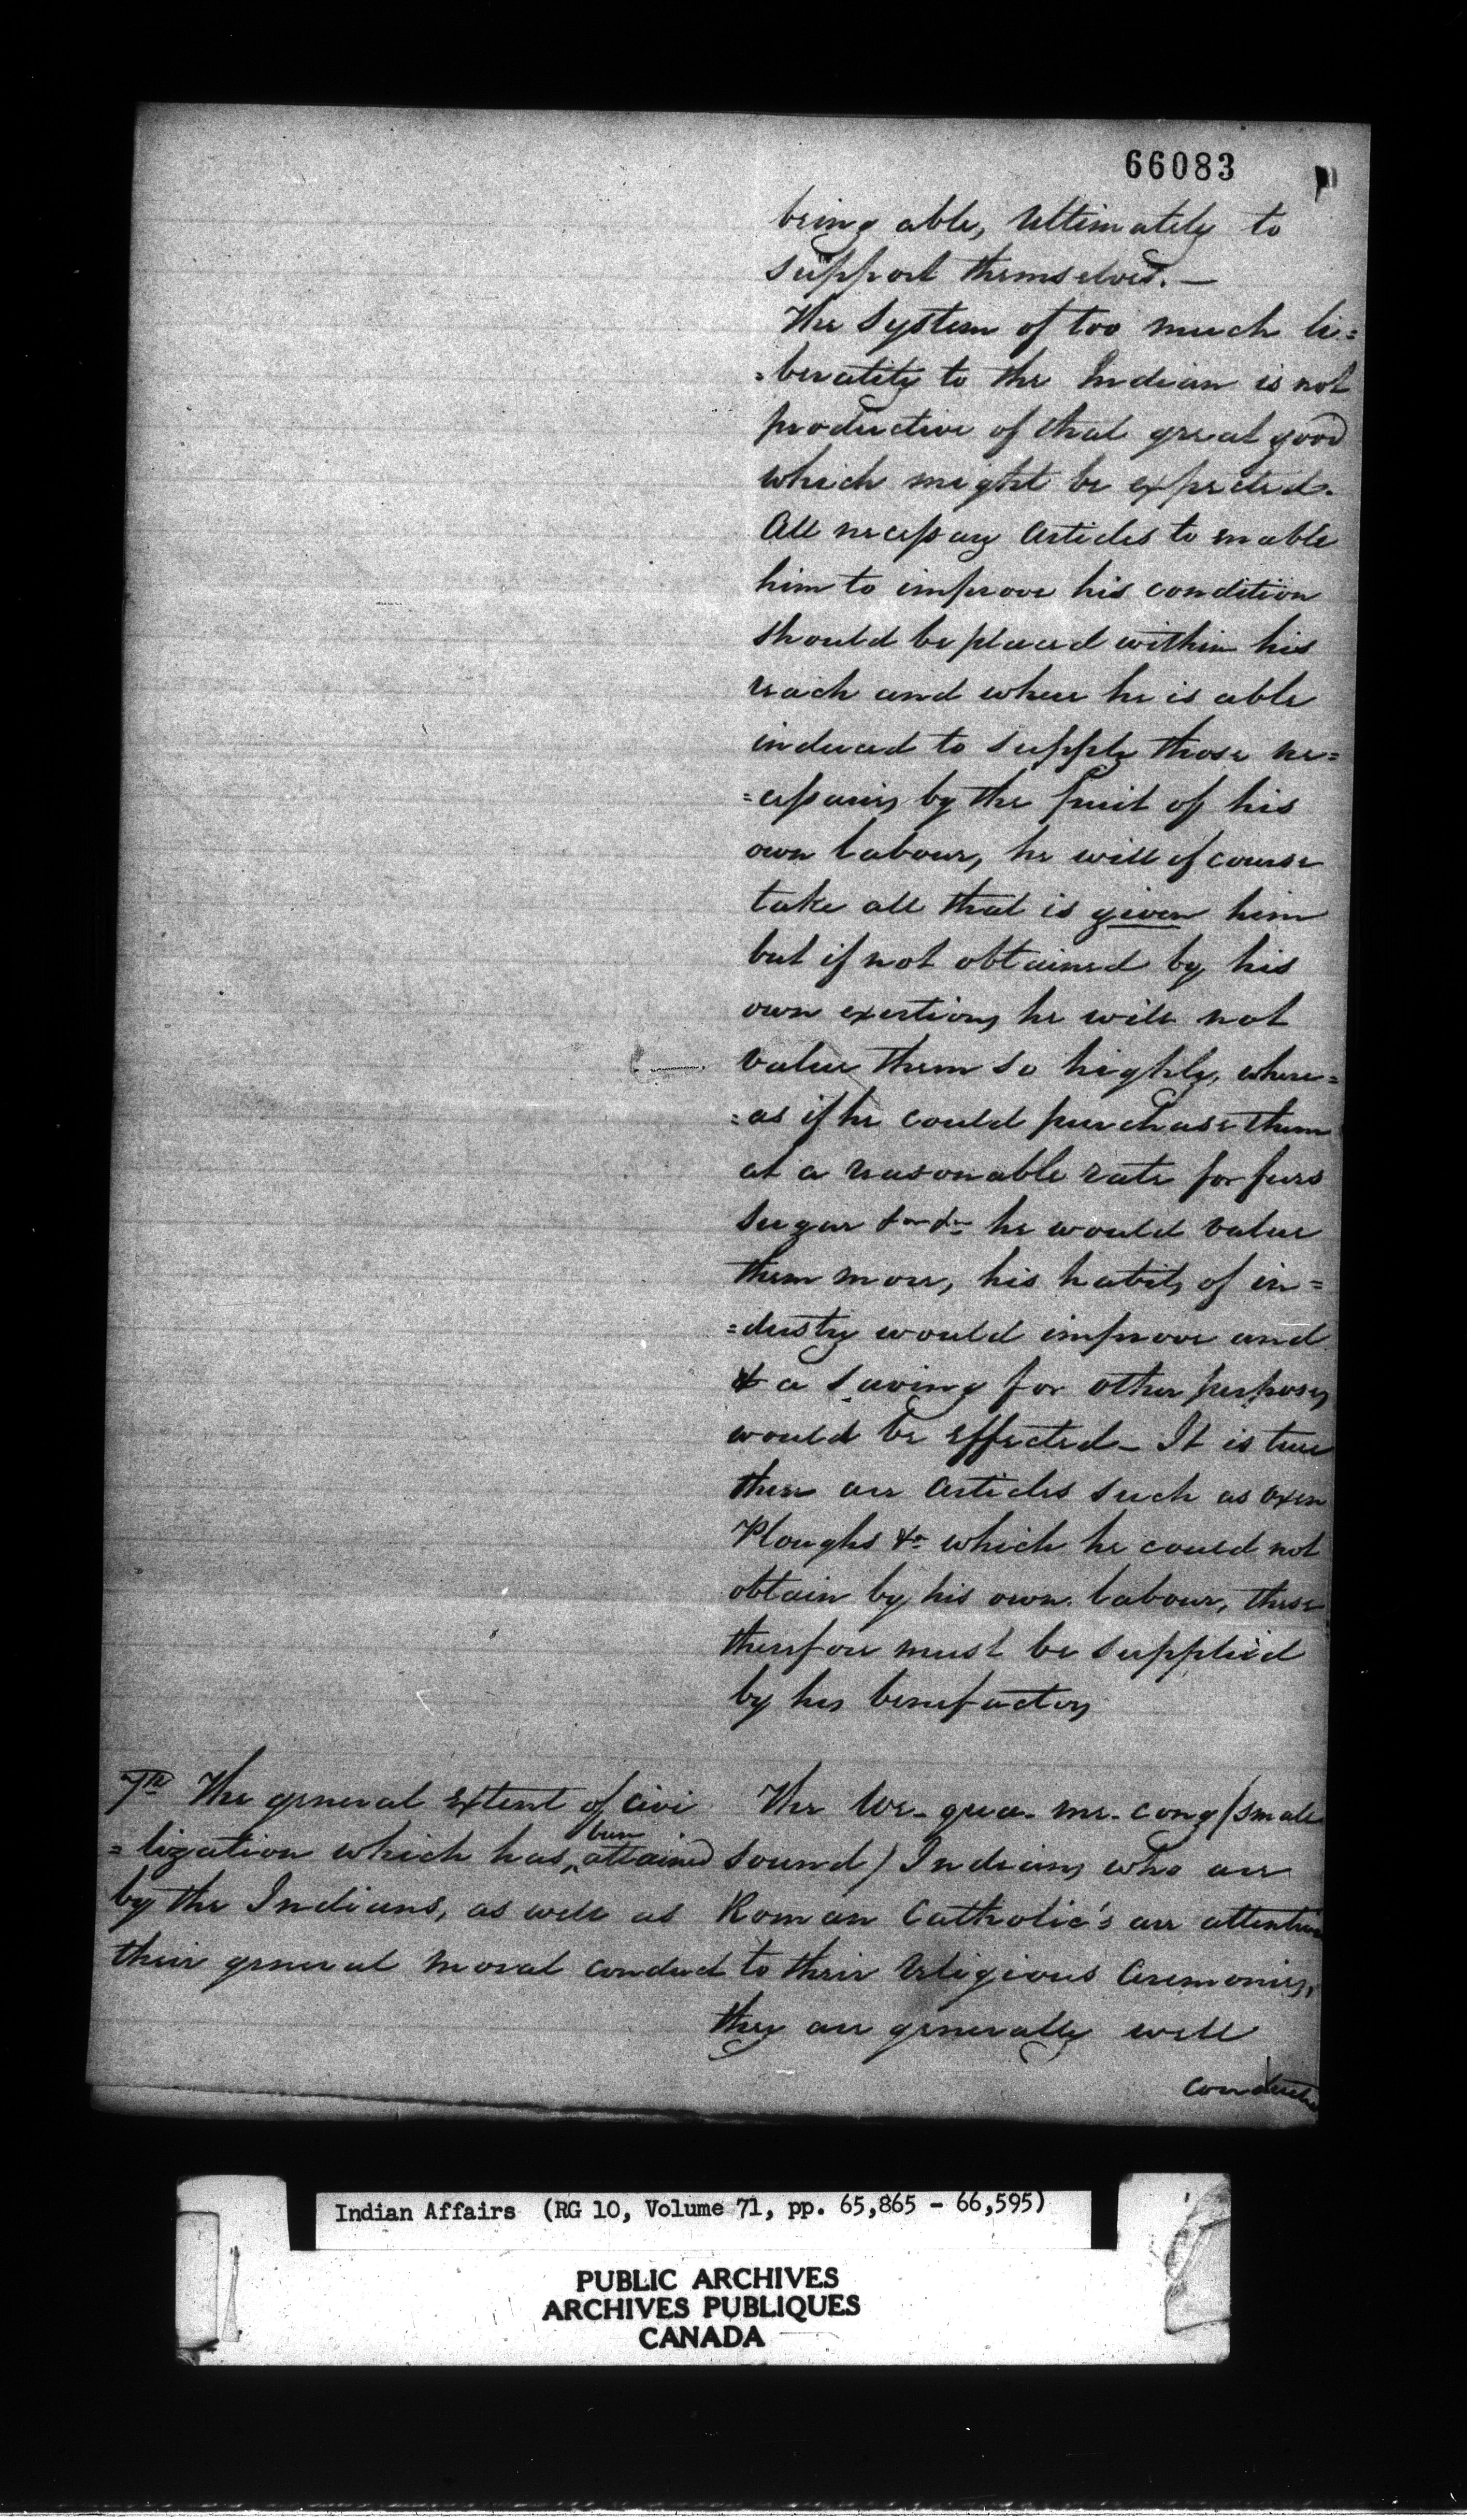 66083
being able, Ultimately to
support themselves. —
The System of too much li=
=berality to the Indian is not
productive of that great good
which might be expected.
All necessary Articles to enable
him to improve his condition
should be placed within his
reach and where he is able
induced to supply those ne=
=cessaries by the fruit of his
own labour, he will of course
take all that is given him
but if not obtained by his
own exertions he will not
value them so highly, where=
=as if he could purchase them
at a reasonable rate for furs
sugar &c &c he would value
them more, his habits of in=
=dustry would improve and
& a saving for other purposes
would be effected – It is true
there are Articles such as oxen
Ploughs &c which he could not
obtain by his own labour, these
therefore must be supplied
by his benefactors
7th The general extent of civi
=lization which has been attained
by the Indians, as well as
their general moral conduct
The We-qua-me-cong (small
sound) Indians who are
Roman Catholic's are attentive
to their religious Ceremonies,
they are generally well
conducted
Indian Affairs (RG 10, Volume 71, pp. 65,865 - 66,595)
PUBLIC ARCHIVES
ARCHIVES PUBLIQUES
CANADA